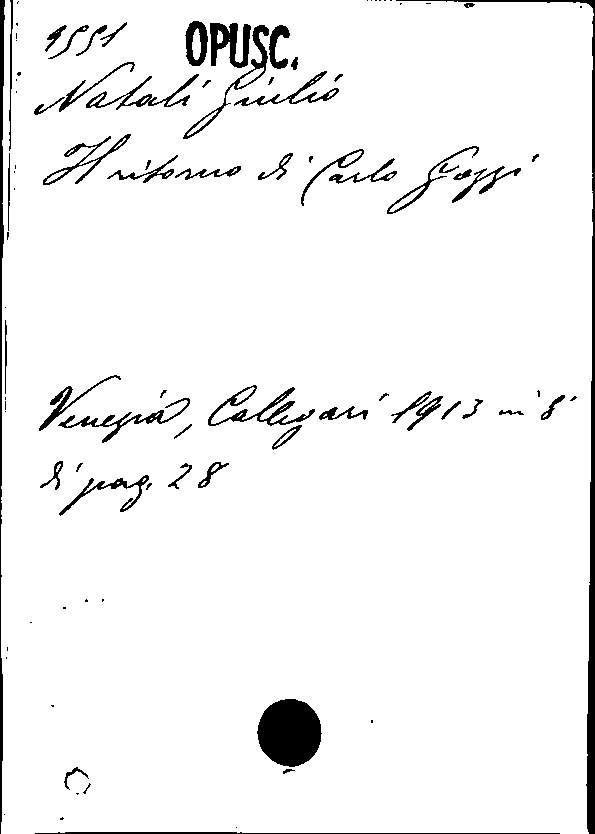 9551 OPUSC.
Natali Giulio
Il ritorno di Carlo Gozzi
Venezia, Callegari 1913 in 8°
di pag. 28